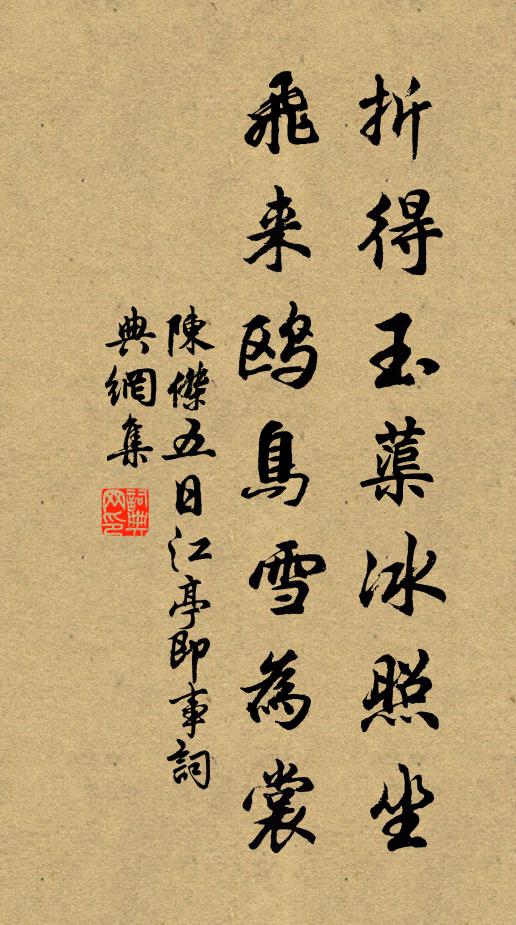 折得玉蕖冰照坐
飛来鸥鳥雪為裳
陳傑五日江亭即事詞
典網集
詞典网印